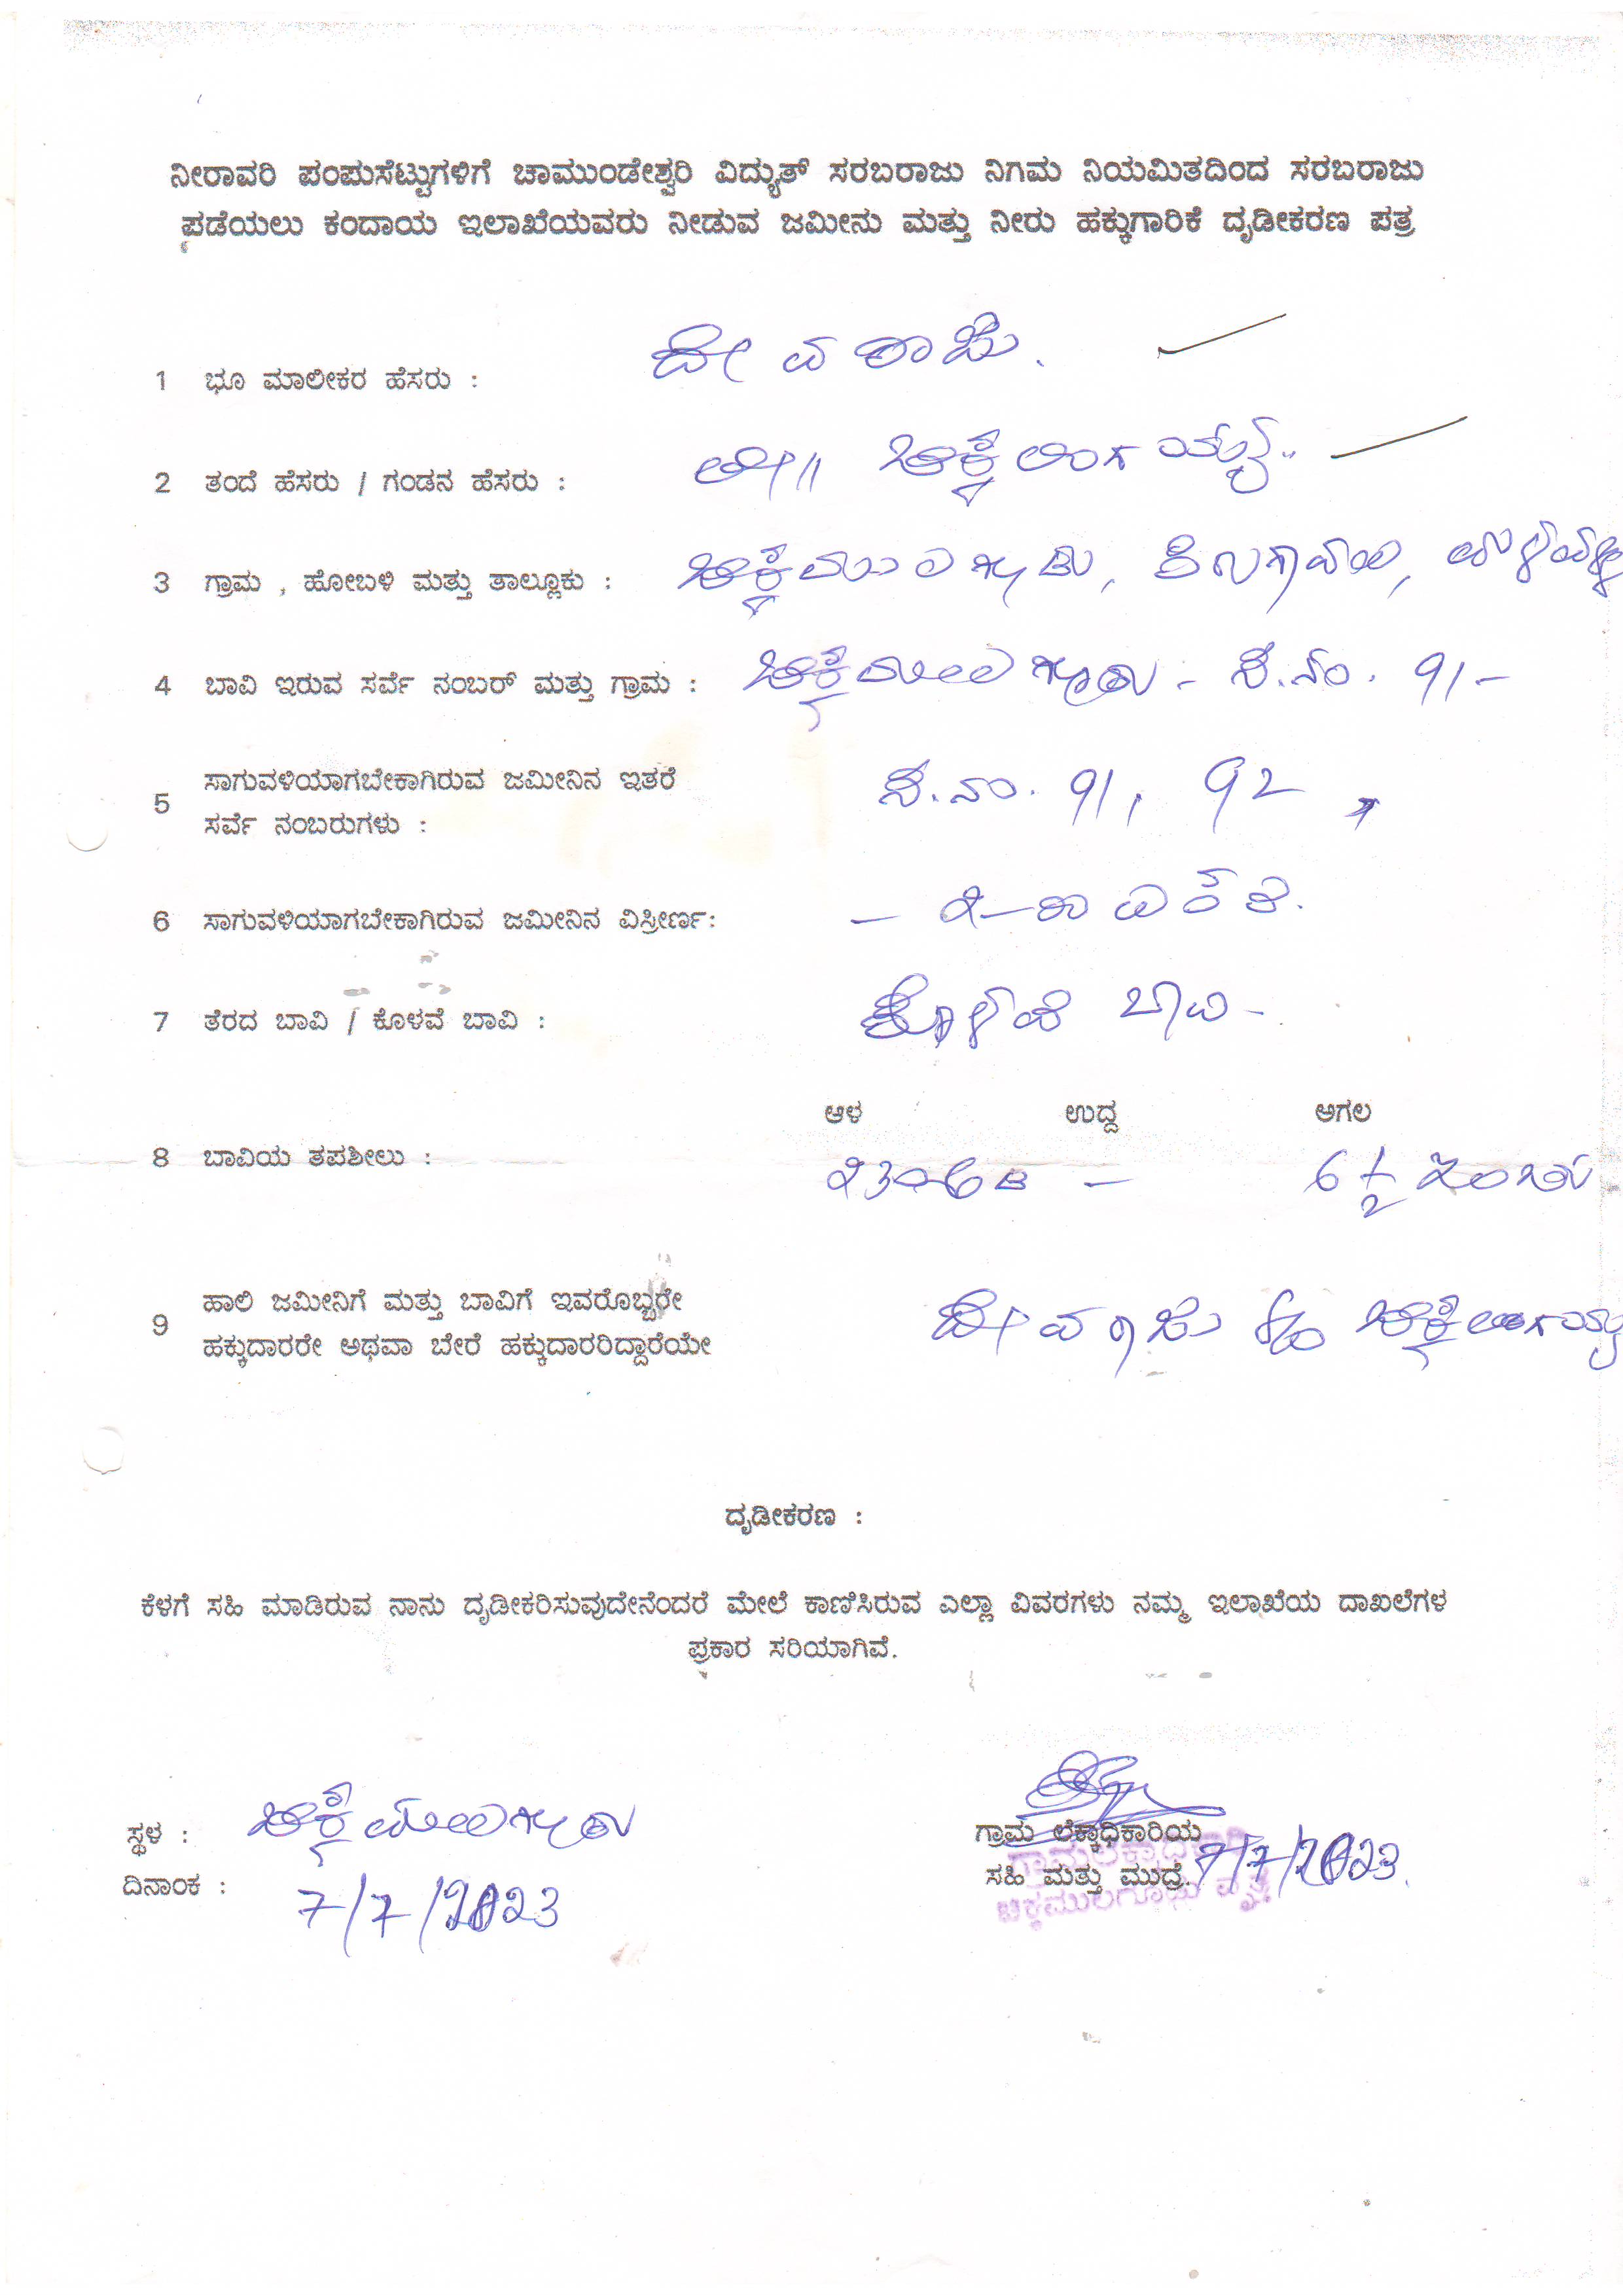 ನೀರಾವರಿ ಪಂಪುಸೆಟ್ಟುಗಳಿಗೆ ಚಾಮುಂಡೇಶ್ವರಿ ವಿದ್ಯುತ್ ಸರಬರಾಜು ನಿಗಮ ನಿಯಮಿತದಿಂದ ಸರಬರಾಜು
ಪಡೆಯಲು ಕಂದಾಯ ಇಲಾಖೆಯವರು ನೀಡುವ ಜಮೀನು ಮತ್ತು ನೀರು ಹಕ್ಕುಗಾರಿಕೆ ದೃಡೀಕರಣ ಪತ್ರ
1 ಭೂ ಮಾಲೀಕರ ಹೆಸರು : ದೇವರಾಜು.
2 ತಂದೆ ಹೆಸರು / ಗಂಡನ ಹೆಸರು : ಚಿಕ್ಕಲಿಂಗಯ್ಯ
3 ಗ್ರಾಮ , ಹೋಬಳಿ ಮತ್ತು ತಾಲ್ಲೂಕು : ಚಿಕ್ಕಮುಲಗೂಡು, ಕಿರುಗಾವಲು,
4 ಬಾವಿ ಇರುವ ಸರ್ವೆ ನಂಬರ್ ಮತ್ತು ಗ್ರಾಮ : ಚಿಕ್ಕಮುಲಗೂಡು - ಸ.ನಂ. 91-
5 ಸಾಗುವಳಿಯಾಗಬೇಕಾಗಿರುವ ಜಮೀನಿನ ಇತರೆ
ಸರ್ವೆ ನಂಬರುಗಳು : ಸ.ನಂ. 91, 92,
6 ಸಾಗುವಳಿಯಾಗಬೇಕಾಗಿರುವ ಜಮೀನಿನ ವಿಸ್ತೀರ್ಣ: ಎಕರೆ.
7 ತೆರದ ಬಾವಿ / ಕೊಳವೆ ಬಾವಿ : ಕೊಳವೆ ಬಾವಿ -
ಆಳ ಉದ್ದ ಅಗಲ
8 ಬಾವಿಯ ತಪಶೀಲು : 230 ಅಡಿ - 6 1/2 ಇಂಚು
9 ಹಾಲಿ ಜಮೀನಿಗೆ ಮತ್ತು ಬಾವಿಗೆ ಇವರೊಬ್ಬರೇ
ಹಕ್ಕುದಾರರೇ ಅಥವಾ ಬೇರೆ ಹಕ್ಕುದಾರರಿದ್ದಾರೆಯೇ ದೇವರಾಜು ಚಿಕ್ಕಲಿಂಗಯ್ಯ
ದೃಡೀಕರಣ :
ಕೆಳಗೆ ಸಹಿ ಮಾಡಿರುವ ನಾನು ದೃಡೀಕರಿಸುವುದೇನೆಂದರೆ ಮೇಲೆ ಕಾಣಿಸಿರುವ ಎಲ್ಲಾ ವಿವರಗಳು ನಮ್ಮ ಇಲಾಖೆಯ ದಾಖಲೆಗಳ
ಪ್ರಕಾರ ಸರಿಯಾಗಿವೆ.
ಸ್ಥಳ : ಚಿಕ್ಕಮುಲಗೂಡು
ದಿನಾಂಕ : 7/7/2023
ಗ್ರಾಮ ಲೆಕ್ಕಾಧಿಕಾರಿಯ
ಸಹಿ ಮತ್ತು ಮುದ್ರೆ. 7/7/2023.
ಗ್ರಾಮಲೆಕ್ಕಾಧಿಕಾರಿ
ಚಿಕ್ಕಮುಲಗೂಡು ವೃತ್ತ